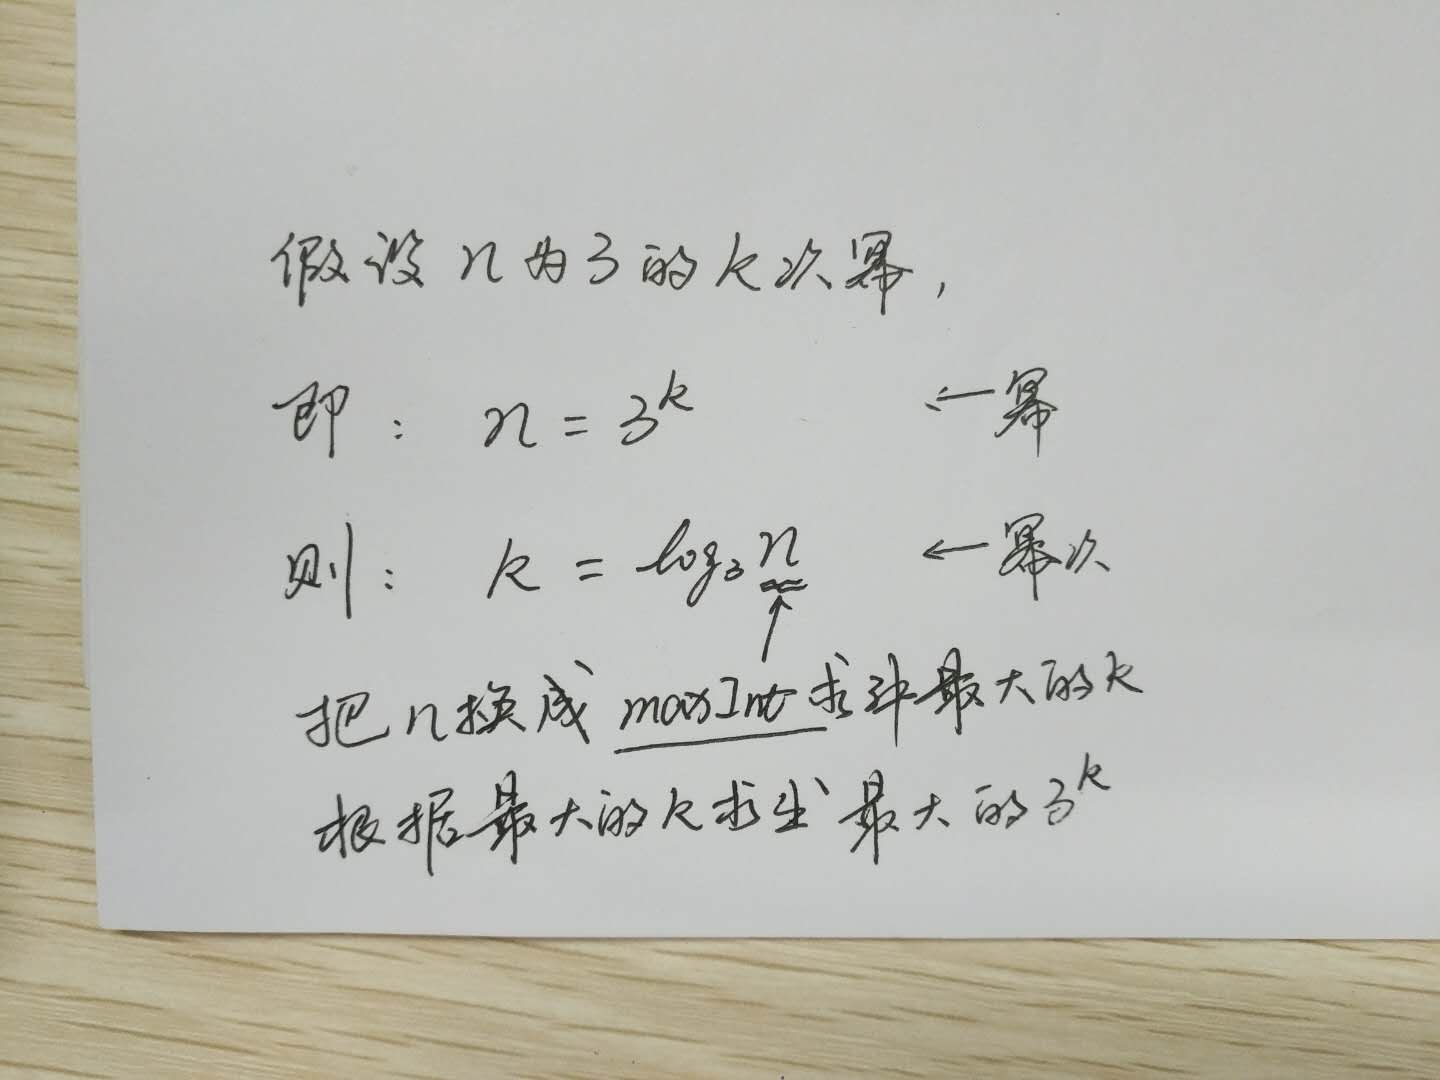 假设n为3的k次幂,
即: n = 3^k ←幂
则: k = log₃n ←幂次
↑
把n换成 maxInt 求得最大的k
根据最大的k求出最大的3^k